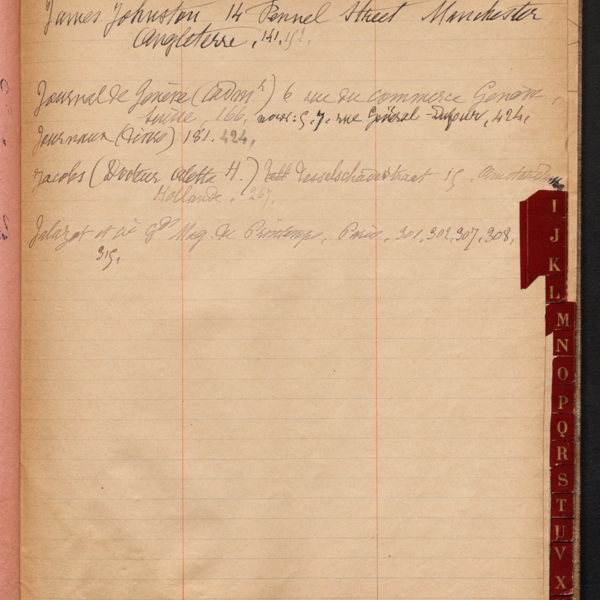 James Johnston 14 Pennel Street Manchester
Angleterre, 141. 151.
Journal de Genève (Admon) 6 rue du commerce Genève,
Suisse, 166, nov: 5.7. rue Général-Dufour, 424,
Journaux (Divers) 181. 424,
Jacobs (Docteur Aletta H.) Tesselschadestraat 15. Amsterdam
Hollande, 267.
Jaluzot et Cie Gds Mag. du Printemps, Paris, 301, 302, 307, 308,
315,
I
J
K
L
M
N
O
P
Q
R
S
T
U
V
X